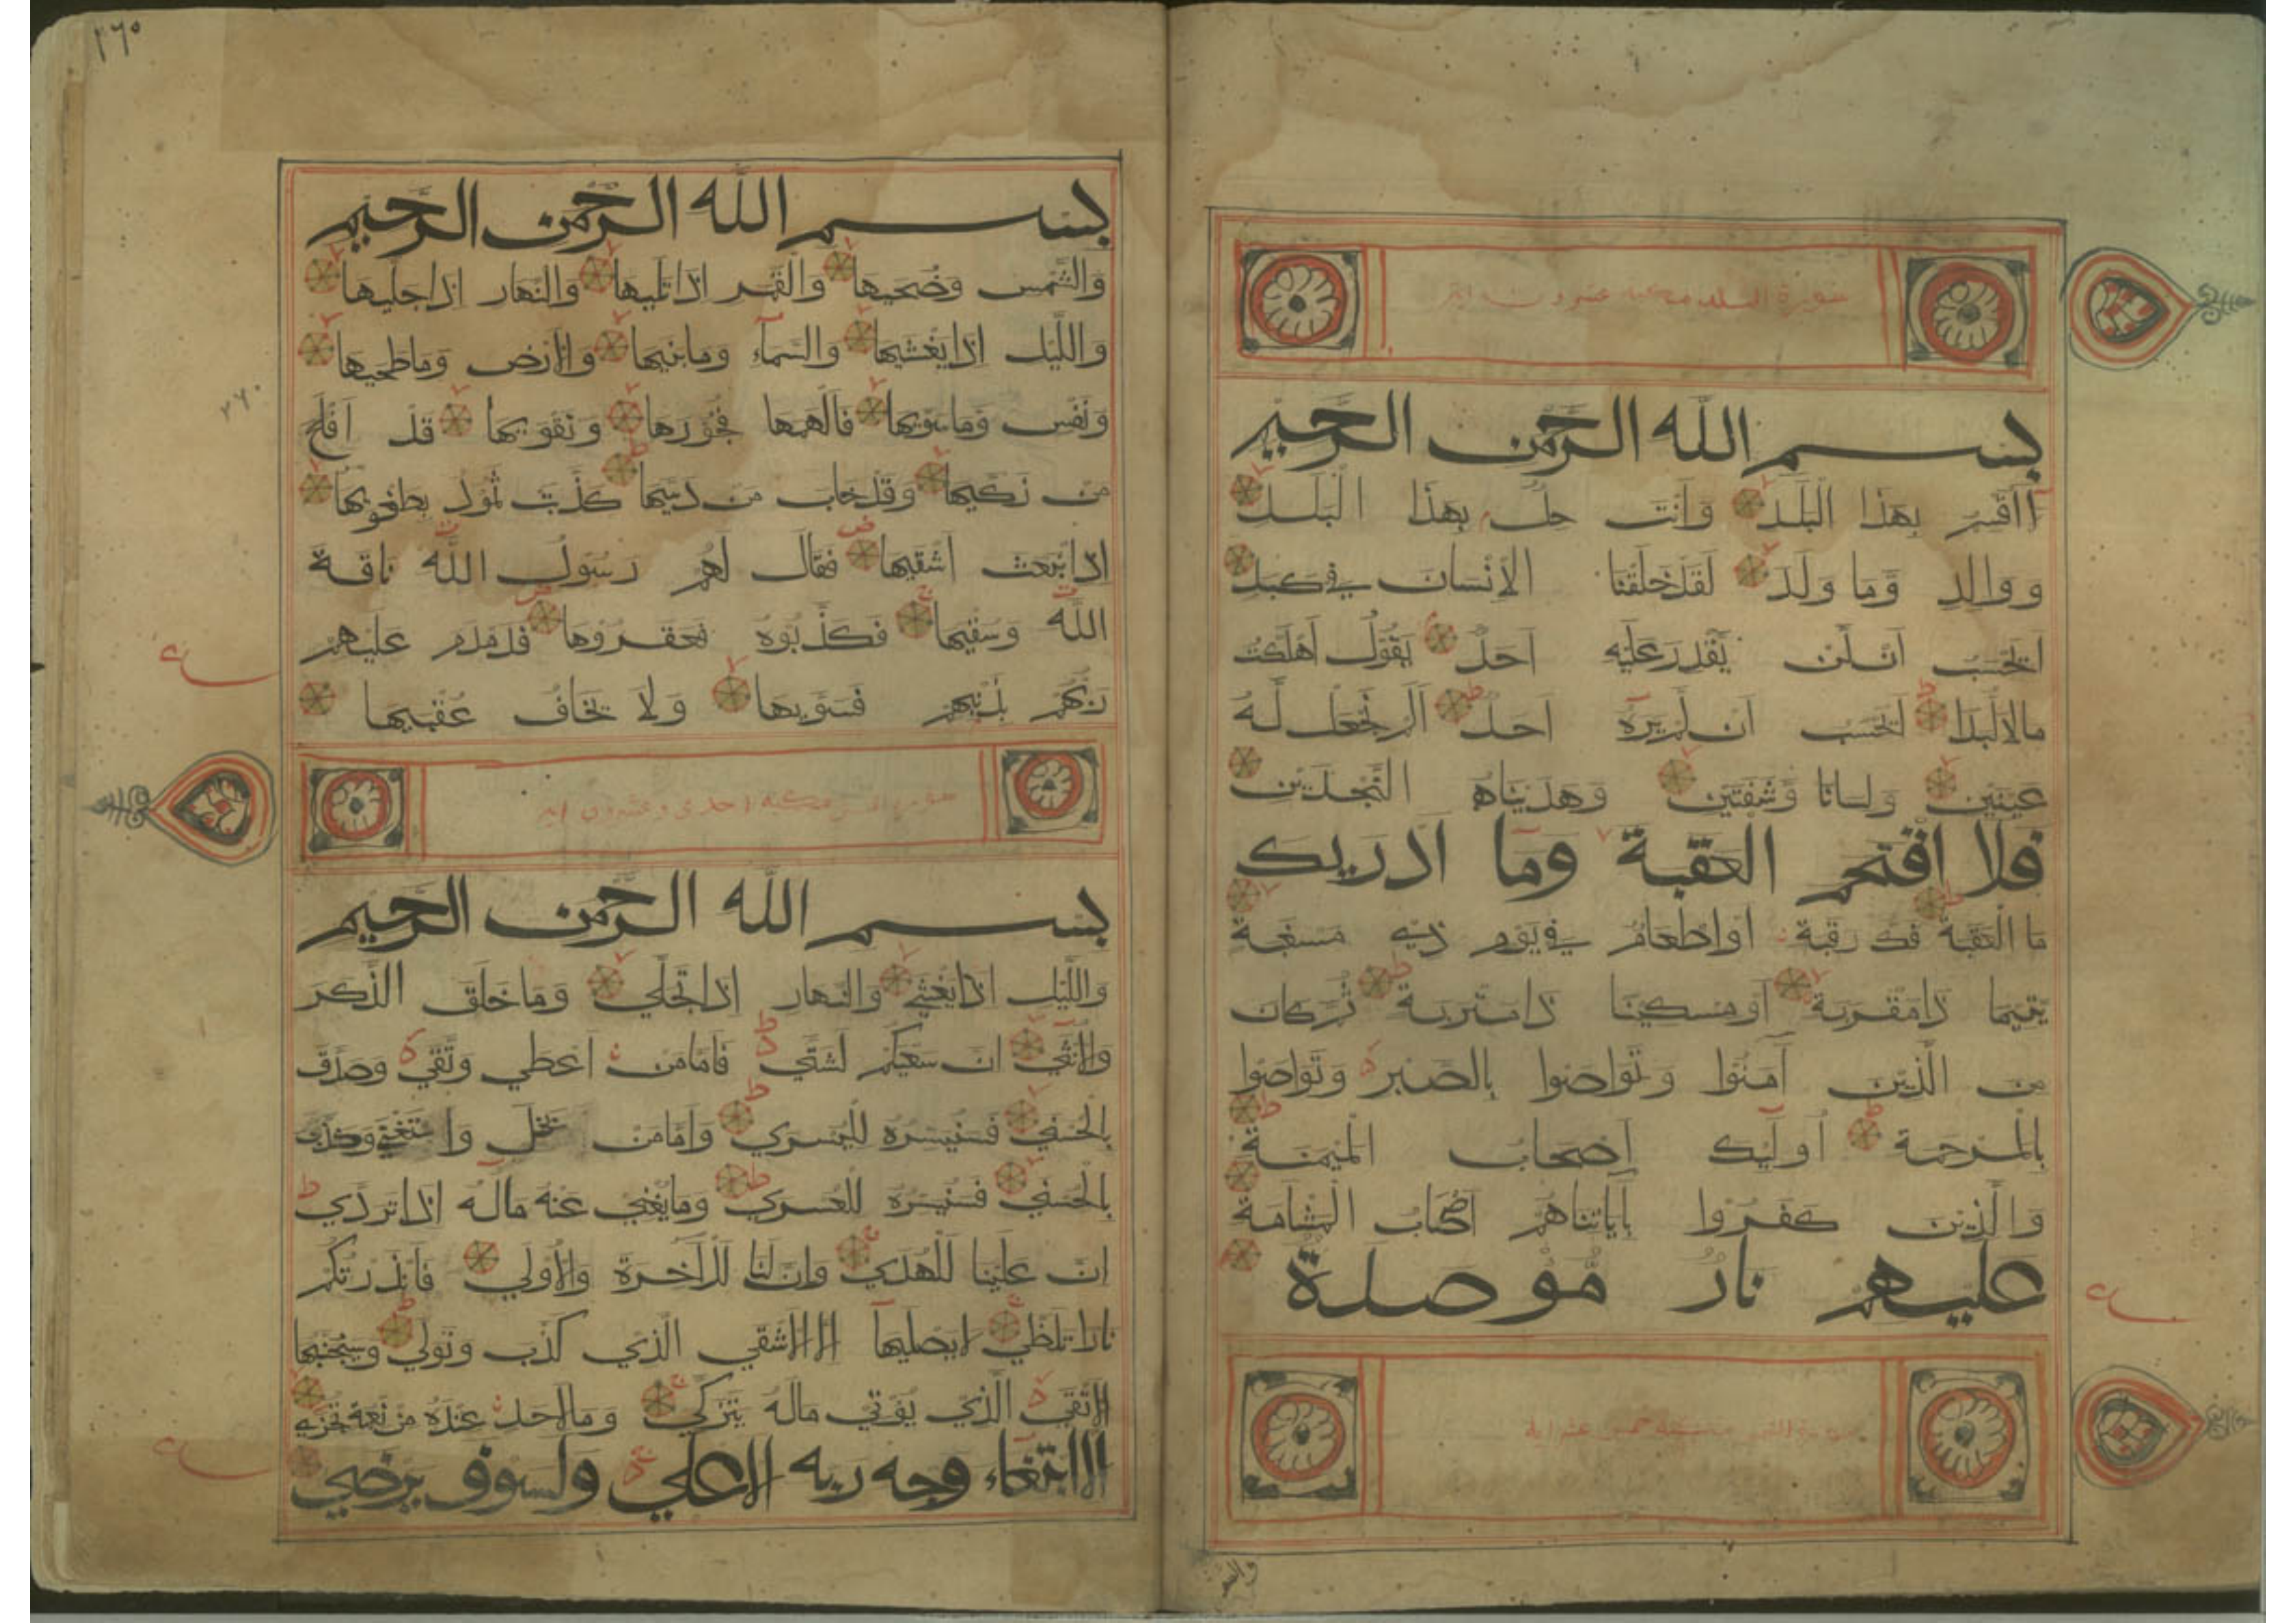 سورة البلد مكية عشرون اية
بسم الله الرحمن الرحيم
لا اقسم بهذا البلد وانت حل بهذا البلد
ووالد وما ولد لقد خلقنا الانسان في كبد
ايحسب ان لن يقدر عليه احد يقول اهلكت
مالا لبدا ايحسب ان لم يره احد الم نجعل له
عينين ولسانا وشفتين وهديناه النجدين
فلا اقتحم العقبة وما ادريك
ما العقبة فك رقبة او اطعام في يوم ذي مسغبة
يتيما ذا مقربة او مسكينا ذا متربة ثم كان
من الذين آمنوا وتواصوا بالصبر وتواصوا
بالمرحمة اوليك اصحاب الميمنة
والذين كفروا بآياتنا هم اصحاب المشامة
عليهم نار موصدة
سورة الشمس خمس عشر اية
والشمس
بسم الله الرحمن الرحيم
والشمس وضحيها والقمر اذا تليها والنهار اذا جليها
والليل اذا يغشيها والسمآء وما بنيها والارض وما طحيها
ونفس وما سويها فالهمها فجورها وتقويها قد افلح
من زكيها وقد خاب من دسيها كذبت ثمود بطغويها
اذ انبعث اشقيها فقال لهم رسول الله ناقة
الله وسقيها فكذبوه فعقروها فدمدم عليهم
ربهم بذنبهم فسويها ولا يخاف عقبيها
سورة الليل مكية احدى وعشرون اية
بسم الله الرحمن الرحيم
والليل اذا يغشي والنهار اذا تجلي وما خلق الذكر
والانثي ان سعيكم لشتي فاما من اعطي وتقي وصدق
بالحسني فسنيسره لليسري واما من بخل واستغني وكذب
بالحسني فسنيسره للعسري وما يغني عنه ماله اذا تردي
ان علينا للهدي وان لنا للآخرة والاولي فانذرتكم
نارا تلظي لا يصليها الا الاشقي الذي كذب وتولي وسيجنبها
الاتقي الذي يؤتي ماله يتزكي وما لاحد عنده من نعمة تجزي
الا ابتغاء وجه ربه الاعلي ولسوف يرضي
٢٦٠
٢٦٠